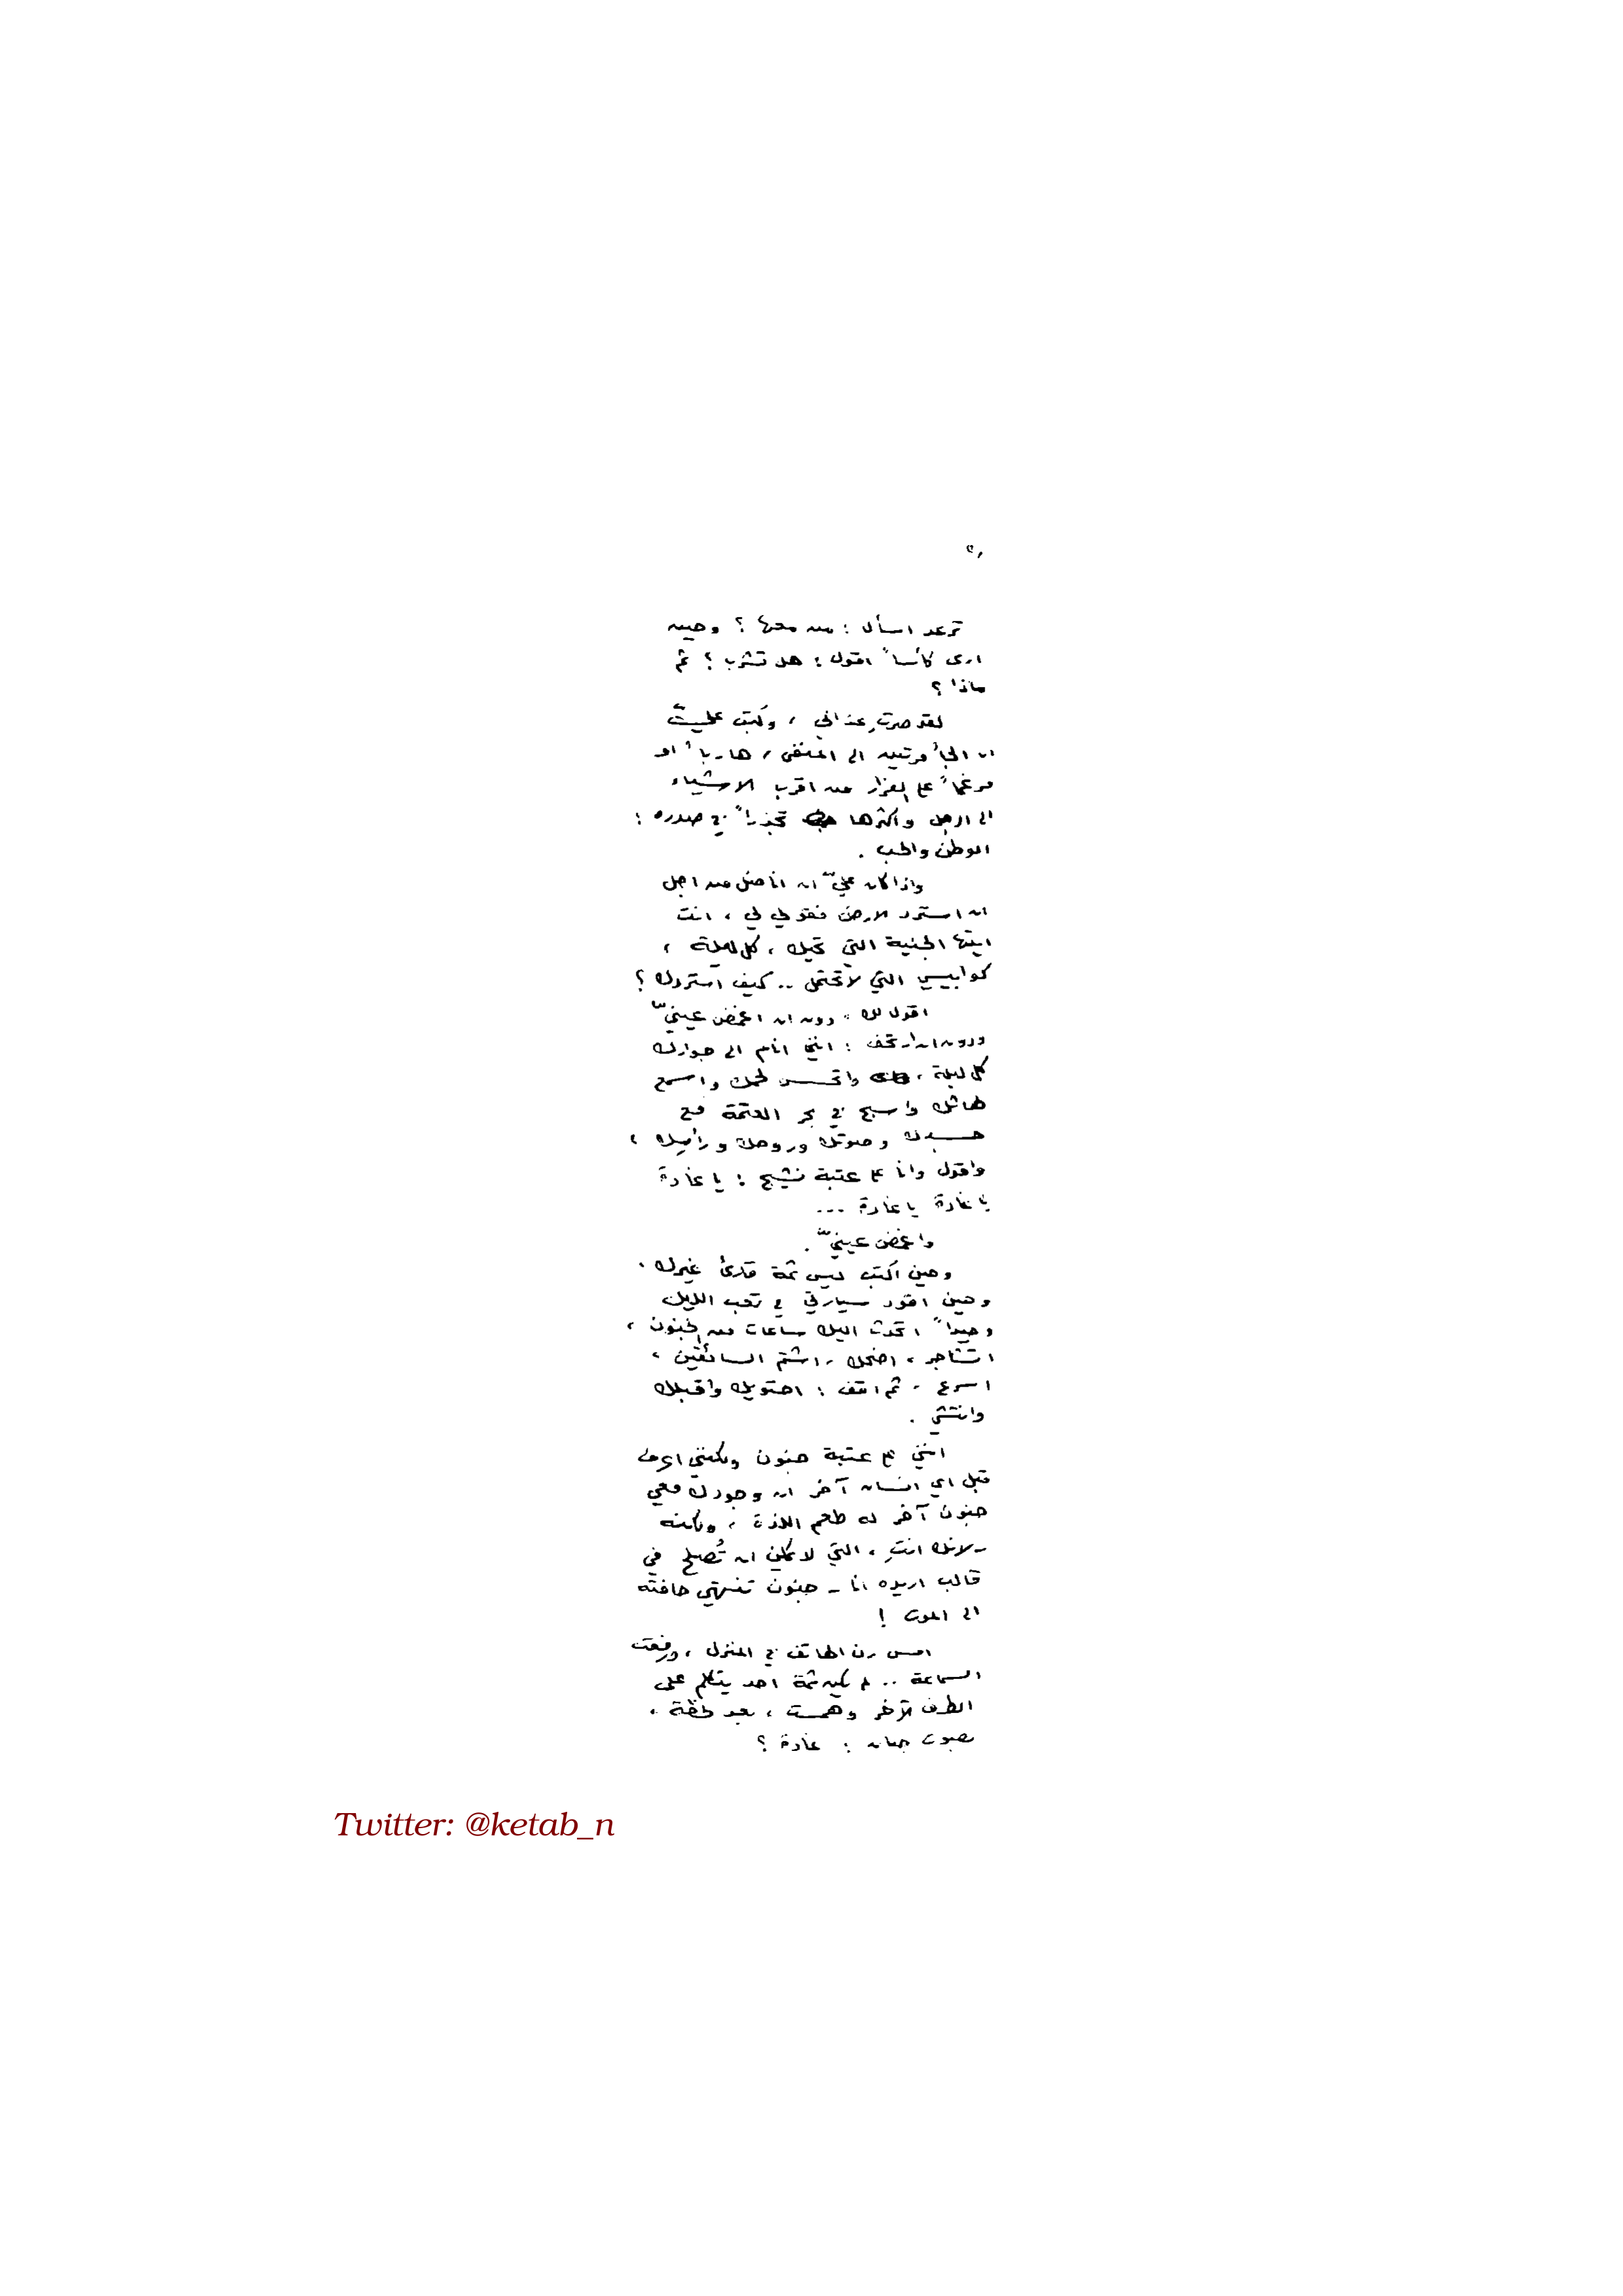 ترعد اسأل : من معها ؟ وحين
ارى كأساً اقول : هل تشرب ؟ ثم
ماذا ؟
لقد صرتِ عذابي ، وكُتب عليّ
ان الجأ مرتين الى المنفى ، هارباً او
مرغماً على الفرار من اقرب الاشياء
الى الرجل واكثرها تجذراً في صدره :
الوطن والحب .
واذا كان عليّ ان اناضل من اجل
ان استرد الارض فقولي لي ، انت
ايتها الجنية التي تحيك ، كل ليلة ،
كوابيسي التي لا تحتمل .. كيف استردك ؟
اقول لك ، دون ان اغمض عينيّ
ودون ان ارتجف : انني انام الى جوارك
كل ليلة ، واتحسس لحمك واسمع
لهاثك واسبح في بحر العتمة مع
جسدك وصوتك وروحك ورأسك ،
واقول وانا على عتبة نشيج : يا غادة
يا غادة يا غادة ...
واغمض عينيّ .
وحين اكتب ليس ثمة قارئ غيرك ،
وحين اقود سيارتي في تعب الليل
وحيداً اتحدث اليك ساعات من الجنون ،
اتشاجر ، اضحك ، اشتم السائقين ،
اسرع ، ثم اقف : احتويك واقبلك
وانتشي .
انني على عتبة جنون ولكنني اعرف
قبل اي انسان آخر ان وجودك معي
جنون آخر له طعم اللذة ، ولكنه
- لانك انتِ ، التي لا يمكن ان تُصلح في
قالب اريده انا - جنون تنتهي حافته
الى الموت !
امس رن الهاتف في المنزل ، ورفعت
السماعة .. لم يكن ثمة احد يتكلم على
الطرف الآخر وهمست ، بعد لحظة ،
بصوت جبان : غادة ؟
Twitter: @ketab_n